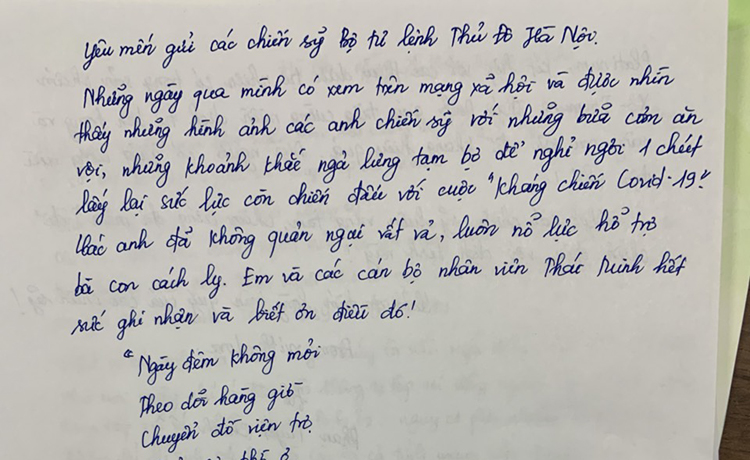 Yêu mến gửi các chiến sỹ Bộ tư lệnh Thủ Đô Hà Nội.
Những ngày qua mình có xem trên mạng xã hội và được nhìn
thấy những hình ảnh các anh chiến sỹ với những bữa cơm ăn
vội, những khoảnh khắc ngả lưng tạm bợ để nghỉ ngơi 1 chút
lấy lại sức lực còn chiến đấu với cuộc "Kháng chiến Covid-19."
Các anh đã không quản ngại vất vả, luôn nỗ lực hỗ trợ
bà con cách ly. Em và các cán bộ nhân viên Phác Minh hết
sức ghi nhận và biết ơn điều đó!
"Ngày đêm không mỏi
Theo dõi hàng giờ
Chuyển đồ viện trợ